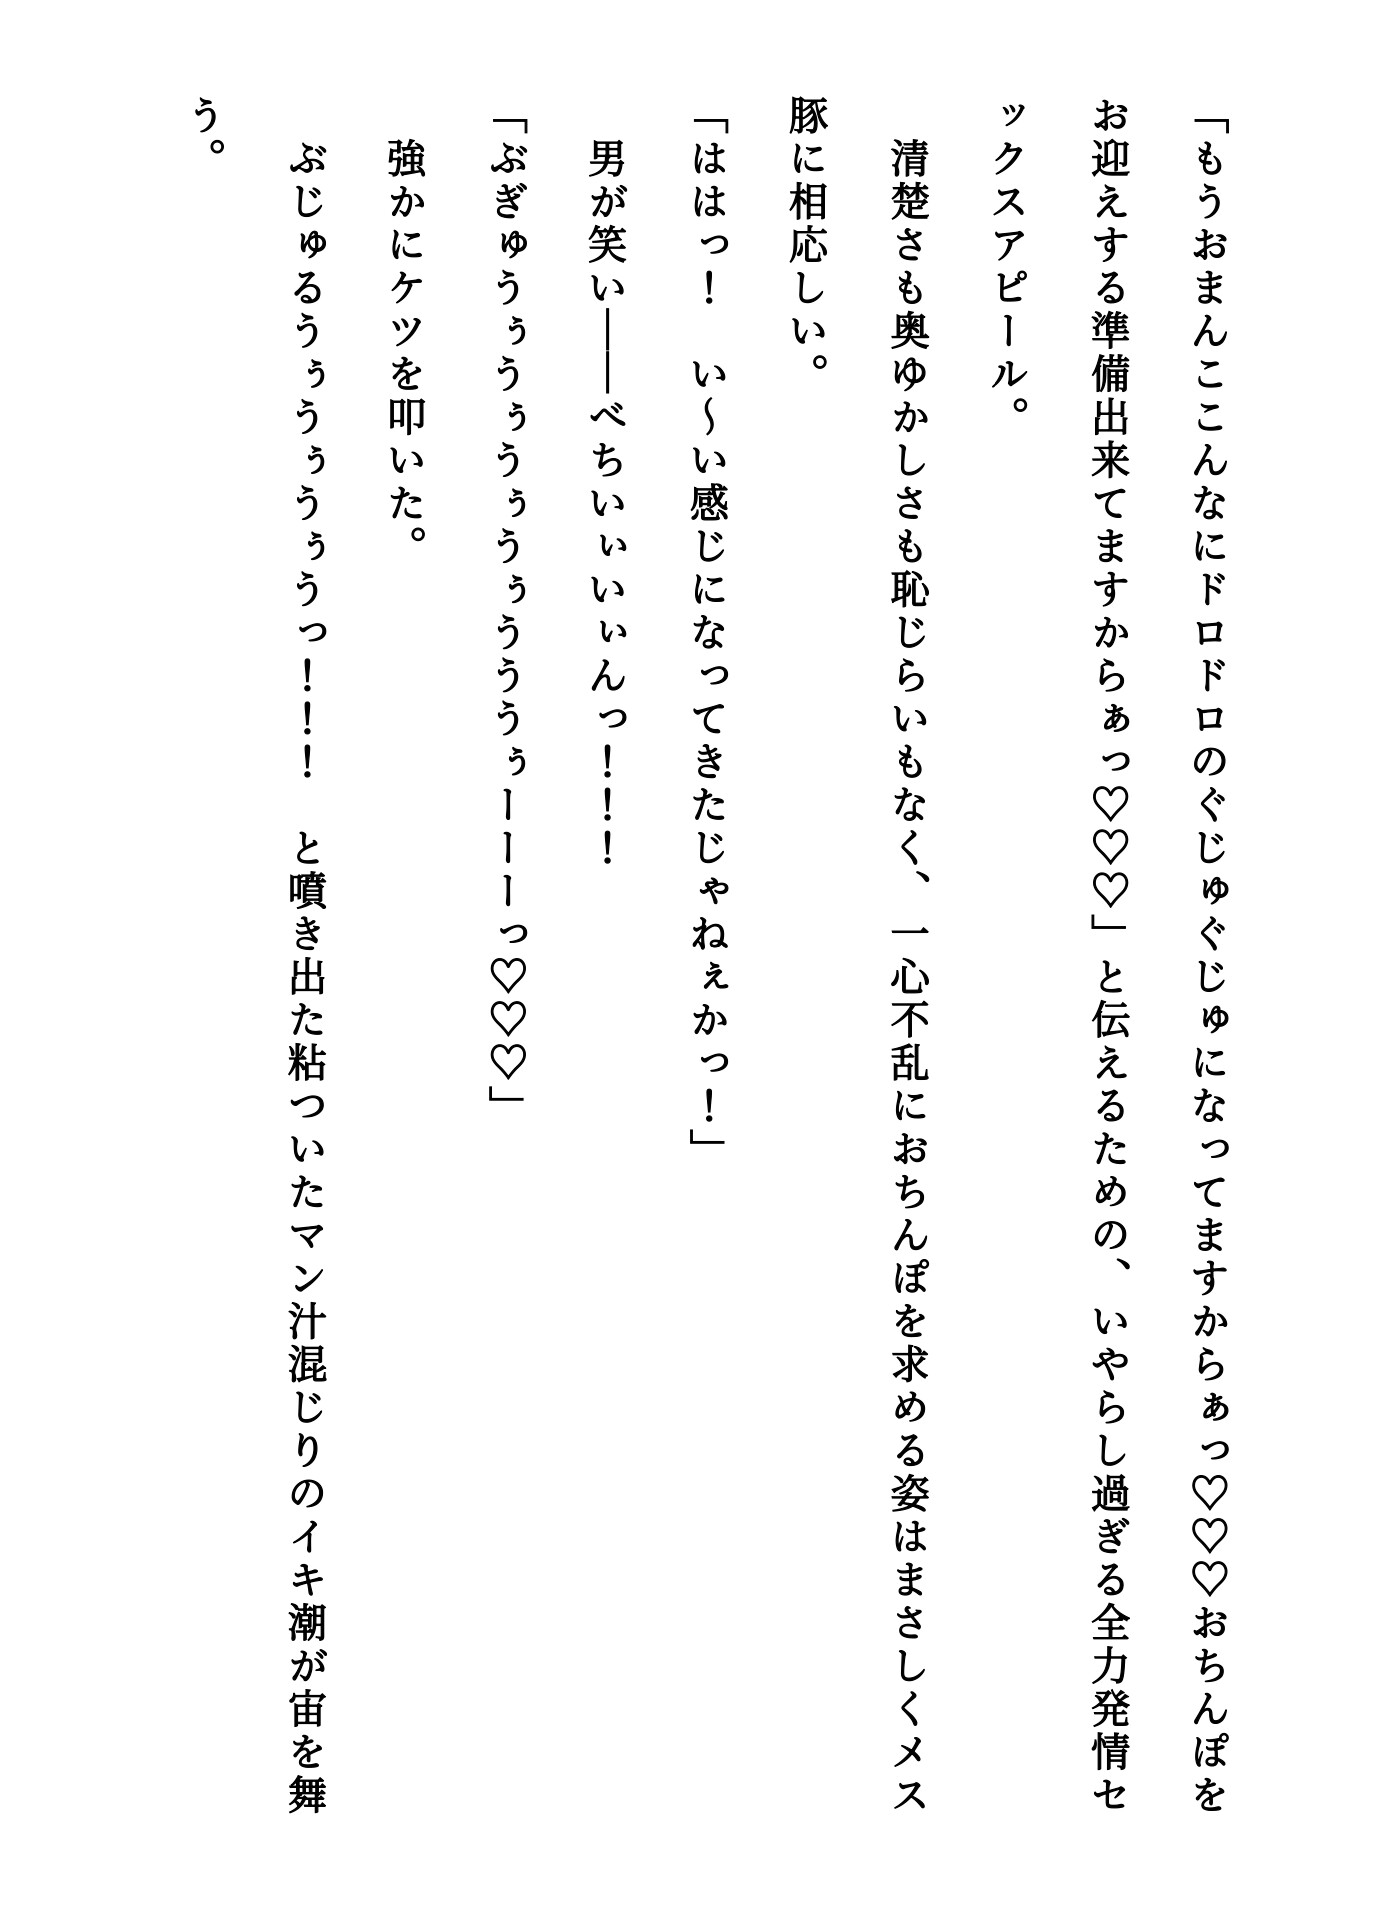 「もうおまんここんなにドロドロのぐじゅぐじゅになってますからぁっ♡♡♡おちんぽを
お迎えする準備出来てますからぁっ♡♡♡」と伝えるための、いやらし過ぎる全力発情セ
ックスアピール。
　清楚さも奥ゆかしさも恥じらいもなく、一心不乱におちんぽを求める姿はまさしくメス
豚に相応しい。
「ははっ！　い〜い感じになってきたじゃねぇかっ！」
　男が笑い――べちいぃいぃんっ！！！
「ぶぎゅうぅうぅうぅうぅうううぅーーーっ♡♡♡」
　強かにケツを叩いた。
　ぶじゅるうぅうぅうぅうっ！！！　と噴き出た粘ついたマン汁混じりのイキ潮が宙を舞
う。